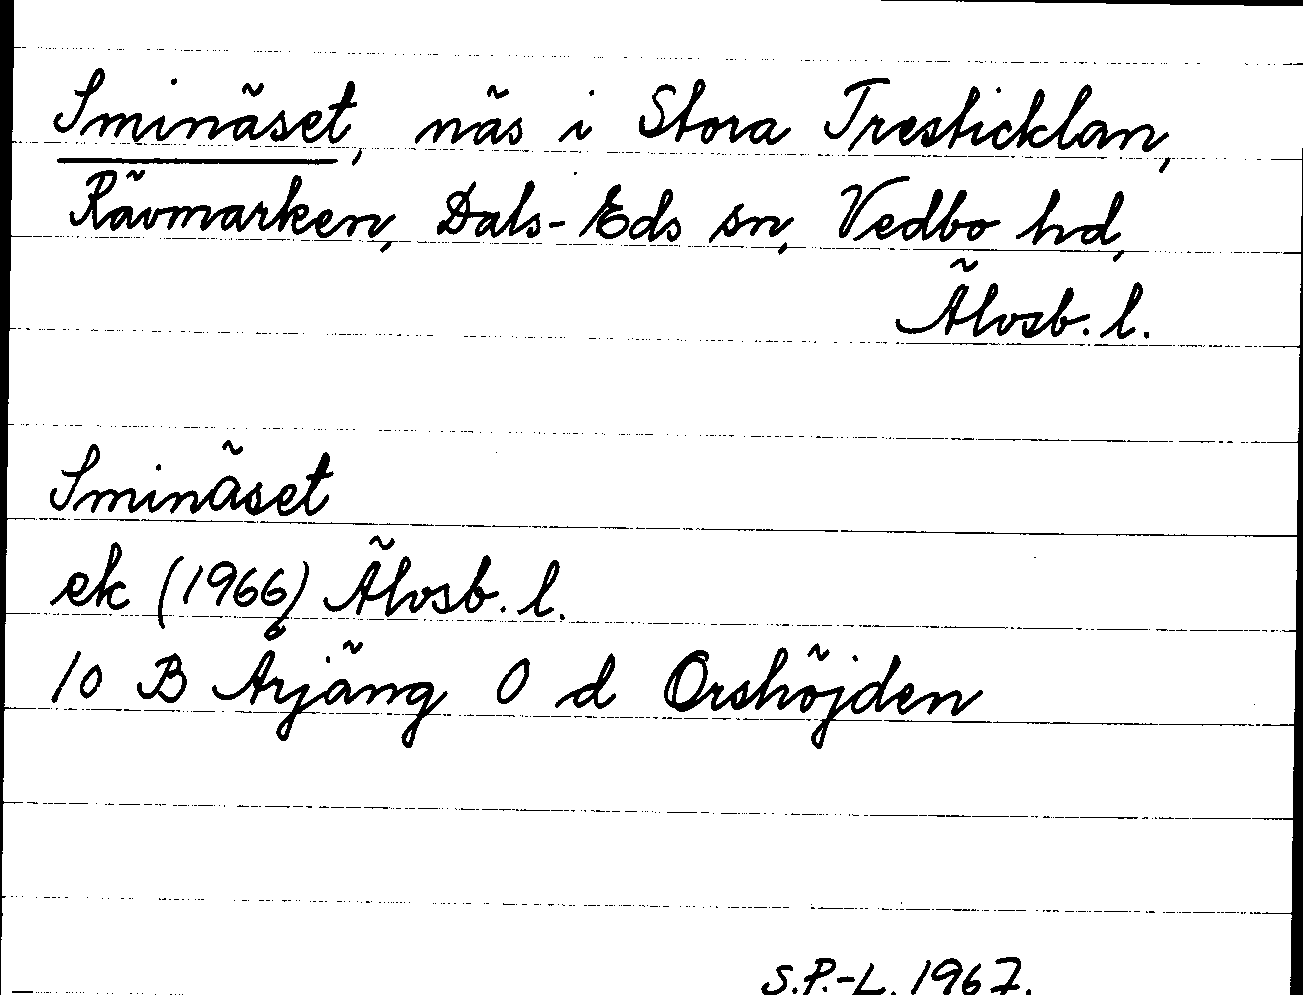 Sminäset, näs i Stora Tresticklan,
Rävmarken, Dals-Eds sn, Vedbo hd,
Älvsb. l.
Sminäset
ek (1966) Älvsb. l.
10 B Årjäng 0 d Orshöjden
S.P.-L. 1967.